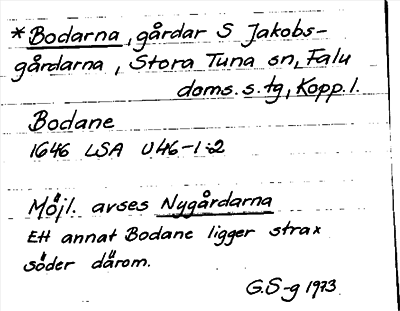 *Bodarna, gårdar S Jakobs-
gårdarna, Stora Tuna sn, Falu
doms. s. tg, Kopp. l.
Bodane
1646 LSA U46-1:2
Möjl. avses Nygårdarna
Ett annat Bodane ligger strax
söder därom.
G.S-g 1973